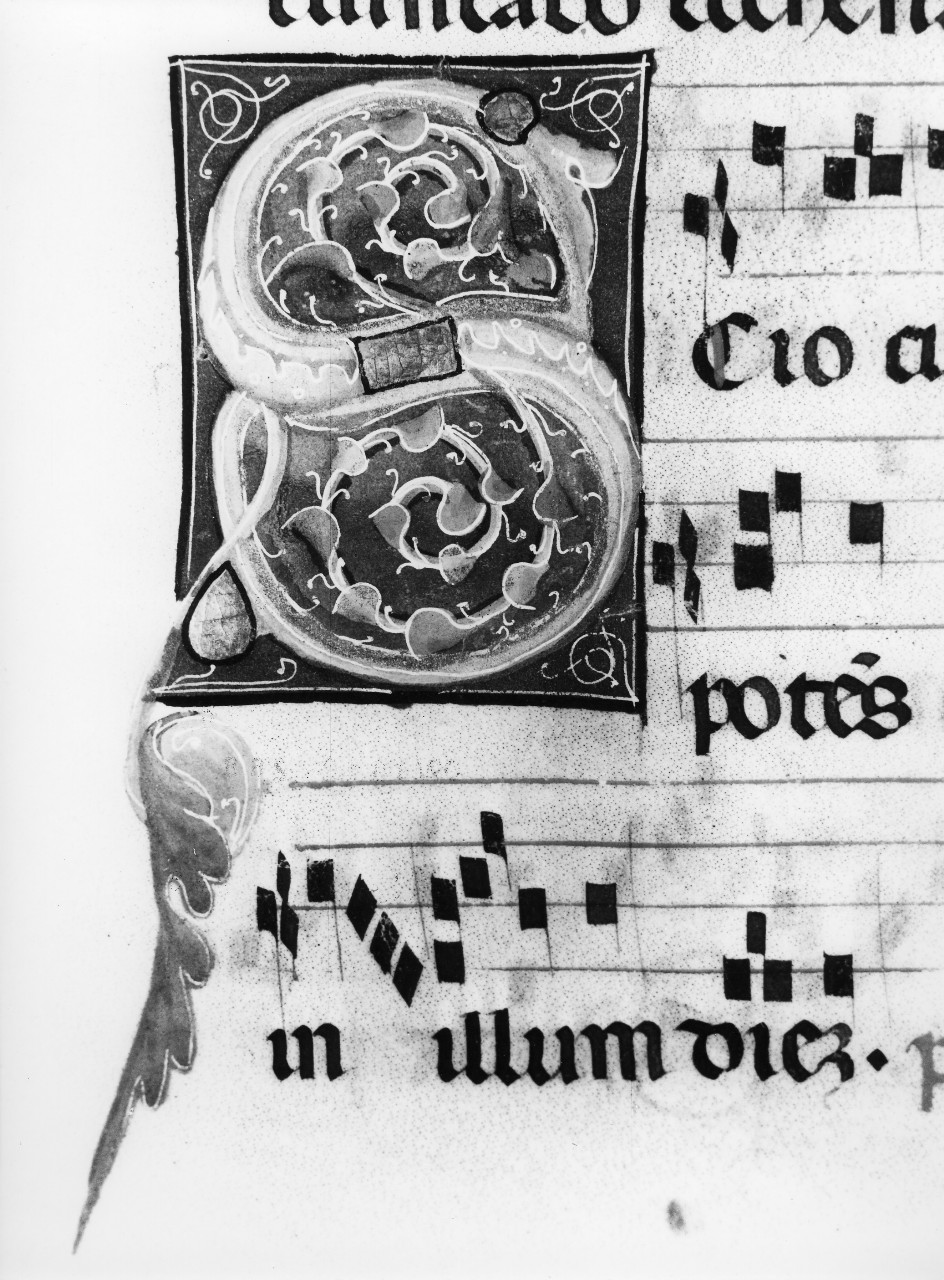 SCio cu
potēs
in illum diez. p